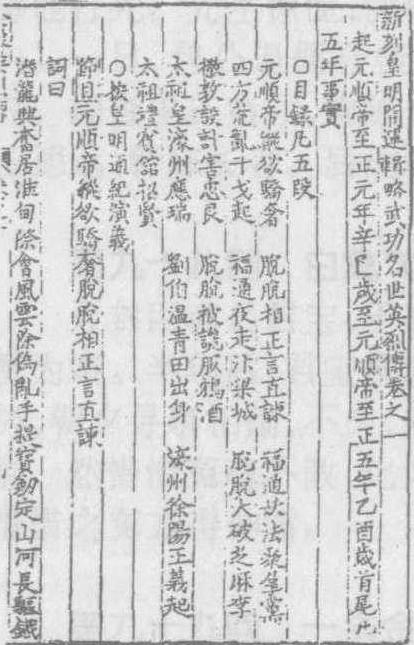 新刻皇明開運輯略武功名世英烈傳卷之一
起元順帝至正元年辛巳歲至元順帝至正五年乙酉歲首尾凡
五年事實
○目錄凡五段
元順帝縱欲驕奢 脫脫相正言直諫 福通妖法聚筆黨
四方荒亂干戈起 福通夜走汴梁城 脫脫大破芝麻李
撒敦設計害忠良 脫脫被譖服鴆酒
太祖皇濠州應瑞 劉伯溫青田出身 濠州徐陽王義起
太祖禮賓舘招賢
○按皇明通紀演義
節目元順帝縱欲驕奢脫脫相正言直諫
詞曰
潛龍興奮居淮甸際會風雲除偽亂手提寶劍定山河長驅鐵